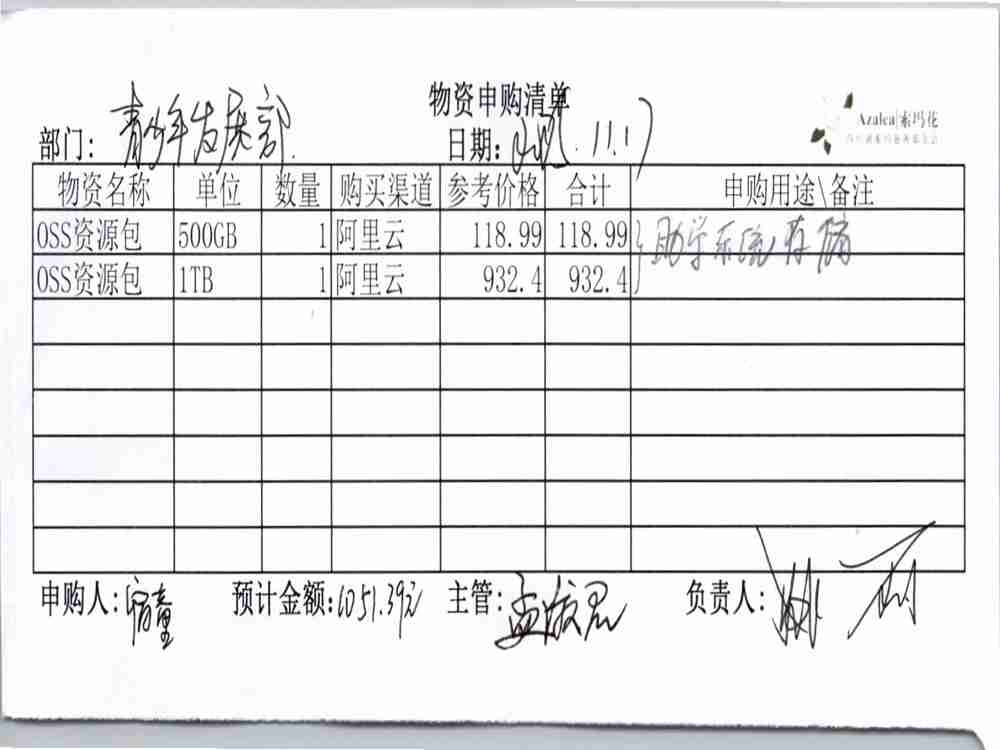 物资申购清单
Azalea 索玛花
部门: 青少年发展部. 日期: 11.17
物资名称 单位 数量 购买渠道 参考价格 合计 申购用途\备注
OSS资源包 500GB 1 阿里云 118.99 118.99 助学系统存储
OSS资源包 1TB 1 阿里云 932.4 932.4
申购人: 预计金额: 1051.39元 主管: 负责人: